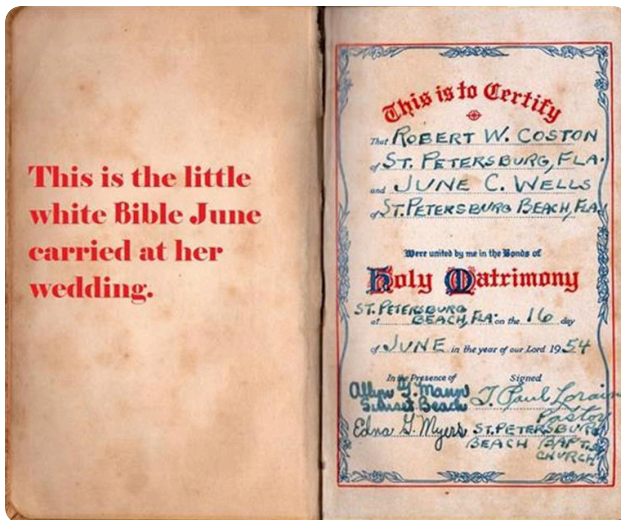 This is the little
white Bible June
carried at her
wedding.
This is to Certify
That ROBERT W. COSTON
of ST. PETERSBURG, FLA.
and JUNE C. WELLS
of ST. PETERSBURG BEACH, FLA.
Were united by me in the Bonds of
Holy Matrimony
ST. PETERSBURG
at BEACH, FLA. on the 16 day
of JUNE in the year of our Lord 1954
In the Presence of
Signed
Allyn G. Mann
Sunset Beach
Edna G. Myers
J. Paul Lorain
Pastor
ST. PETERSBURG
BEACH BAPT.
CHURCH